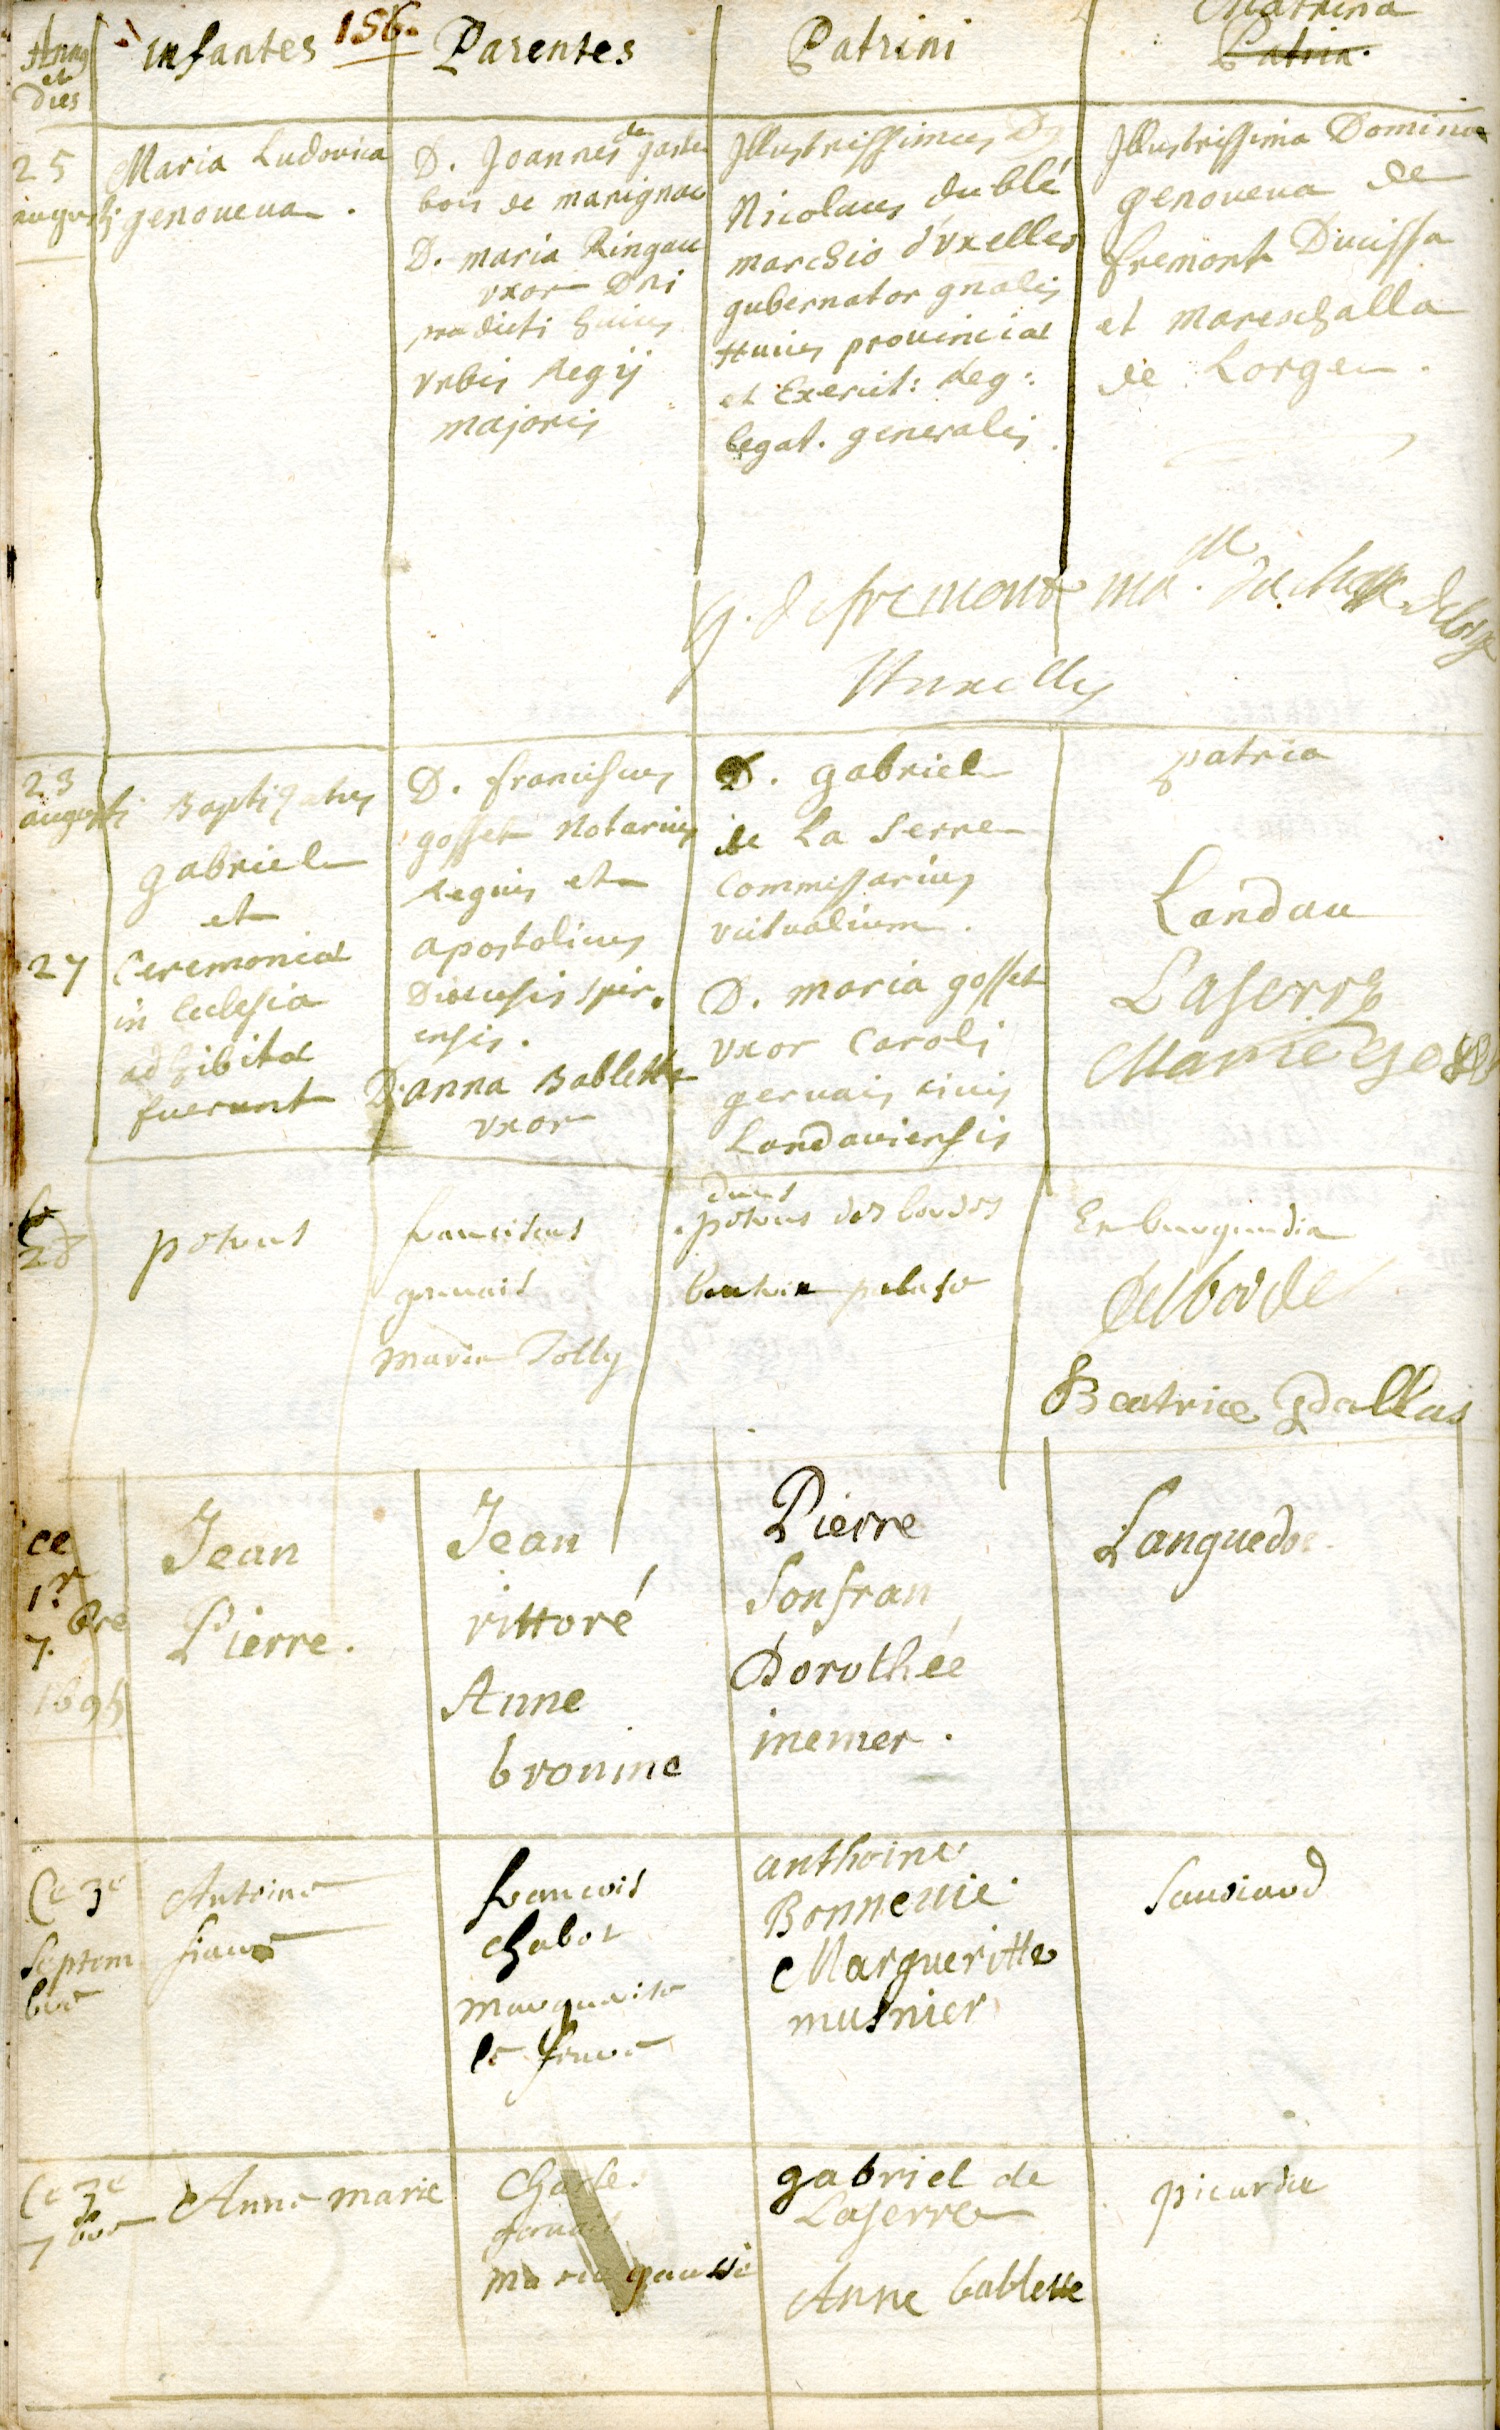 Annus
et
dies
infantes
156.
Parentes
Patrini
Matrina
Patria.
25
augusti
Maria Ludovica
genoueua.
D. Joannes de
bois de marignac
D. maria Ringau
vxor Dni
praedicti huius
vrbis Regij
majoris
Illustrissimus
Nicolaus du blé
marchio d'vxelles
gubernator gnalis
Huius prouinciae
et Exercit: Reg:
legat. generalis.
Illustrissima Domina
genoueua de
fremont Ducissa
et mareschalla
de Lorge.
g. de fremont
Huxelles
23
augusti
27
Baptizatus
gabriel
et
Ceremoniae
in Ecclesia
adhibitae
fuerunt
D. franciscus
gosset Notarius
Regius et
apostolicus
Dioecesis spir.
ensis.
D. anna Bablette
vxor
D. gabriel
de La Serre
Commissarius
victualium.
D. maria gosset
vxor Caroli
gervais civis
Landaviensis
patria
Landau
Laserre
Marie
28
petrus
franciscus
geruais
maria Jolly
petrus des bordes
Ex burgundia
Beatrice Dallas
ce
1r
7.bre
1695
Jean
Pierre.
Jean
rittoré
Anne
bronine
Pierre
Sonfran
Dorothée
inemer.
Languedoc
Ce 3e
Septem
bre
Antoine
francois
chabot
marguerite
anthoine
Bonnevie.
Margueritte
musnier
Ce 3e
7bre
Anne marie
Charle
maria
gabriel de
Laserre
Anne bablette
picardie